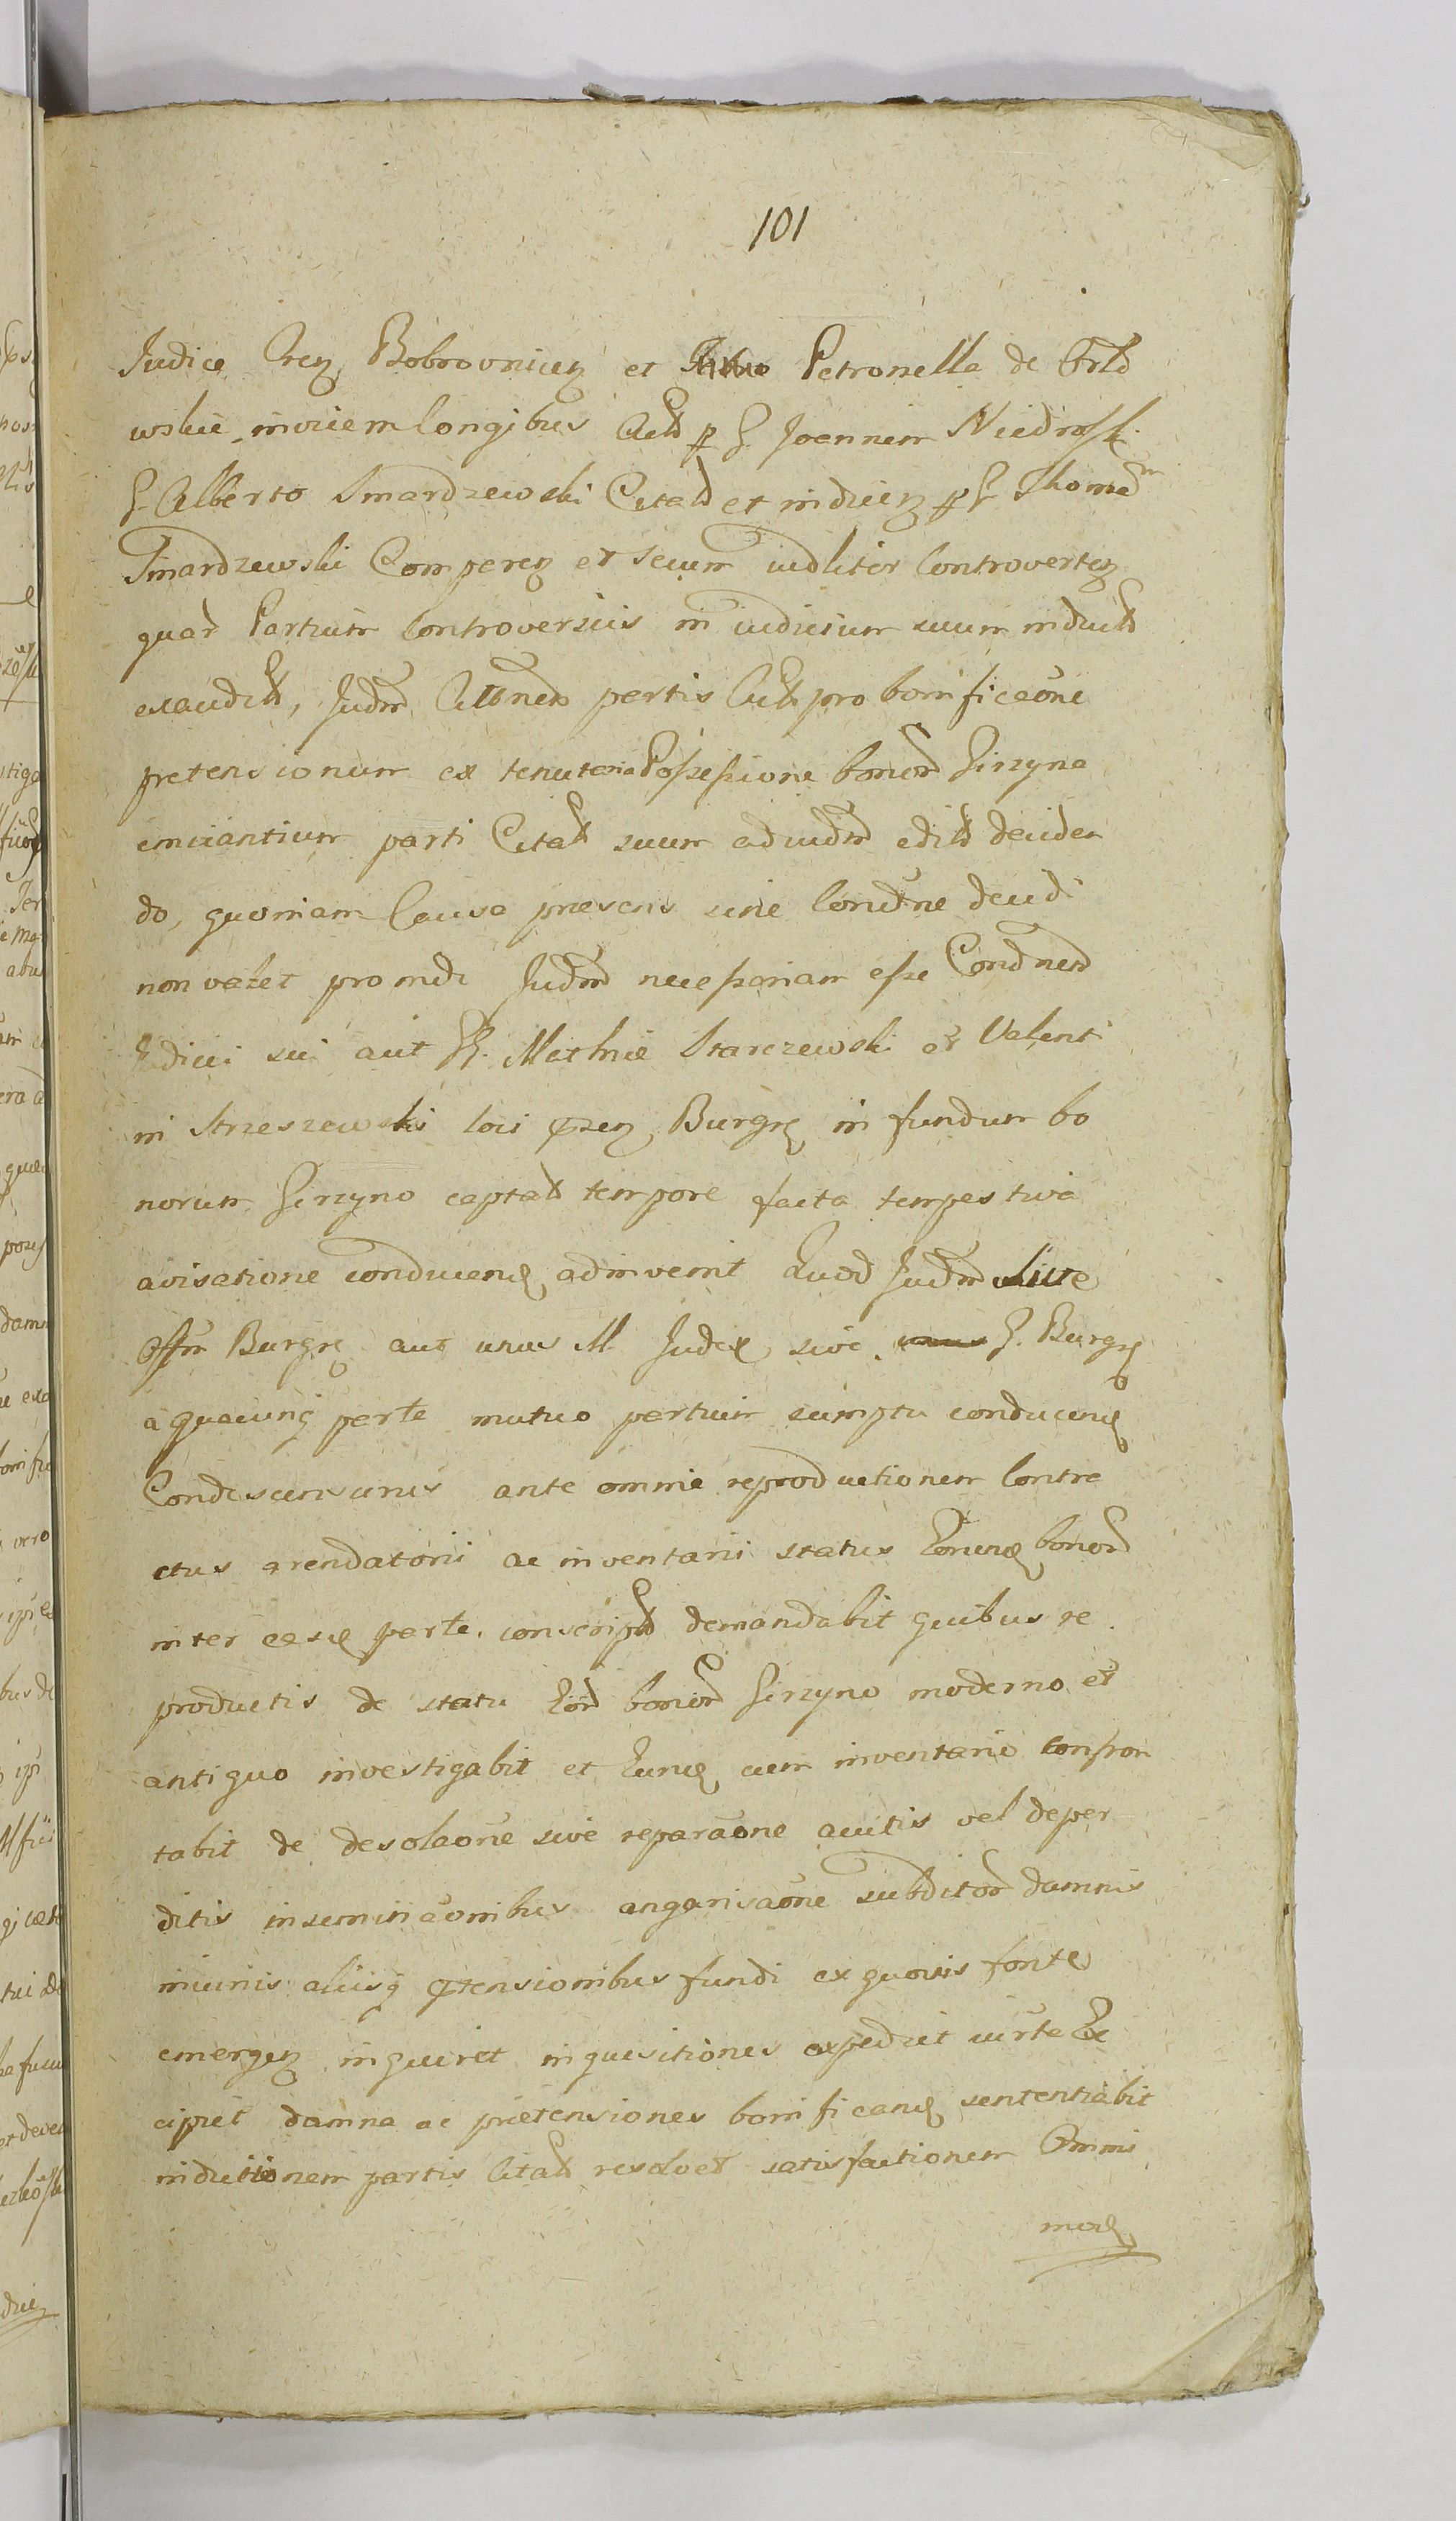 101
Judice Bobrovnicen et Petronella de
wskie invicem Conjgibus Act p G Joannem Niedrosk
G. Alberto Smardzewski Citato et inducen p G Thomam
Smardzewski Comparen et secum iudliter Controverten
quar Partium Controversiis in iudicium suum induct
exaudit, Judm partis Act pro bonificaone
pretensionum ex tenutaria Possessione bonor Girzyna
emicantium parti Citat suum ad iudm edit deciden
do, quoniam Causa praesens sine Condne decidi
non valet proinde Judm necessariam esse Condnem
Judici sui aut GG. Mathiae Starczewski et Valenti
ni Strzeszewski loci prn Burgr in fundum bo
norum Girzyno captato tempore facta tempestiva
avisatione conducend adinvenit Quod Judm sive
Offm Burgr aut unus M Judex sive G. Burgr
a quacunq parte mutuo partium sumptu conducend
Condescensurus ante omnia reproductionem Contra
ctus arendatorii ac inventarii status Eorund bonor
inter easd partes conscript demandabit quibus re
productis de statu Eor bonor Girzyno moderno et
antiquo investigabit et Eund cum inventario confron
tabit de desolaone sive reparaone auctis vel deper
ditis inseminaonibus angarisaone subditor damnis
iniuriis aliisq ptensionibus fundi ex quovis fonte
emergen inquiret inquisitiones expediet iurta Ex
cipiet damna ac praetensiones bonificand sententiabit
inductionem partis Citat resolvet satisfactionem Omni
mod